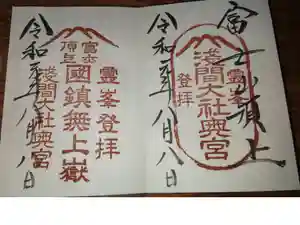 富士山頂上
霊峯登拝
浅間大社奥宮
登拝
令和元年八月八日
霊峯登拝
富士
頂上
國鎮無上嶽
浅間大社奥宮
令和元年八月八日